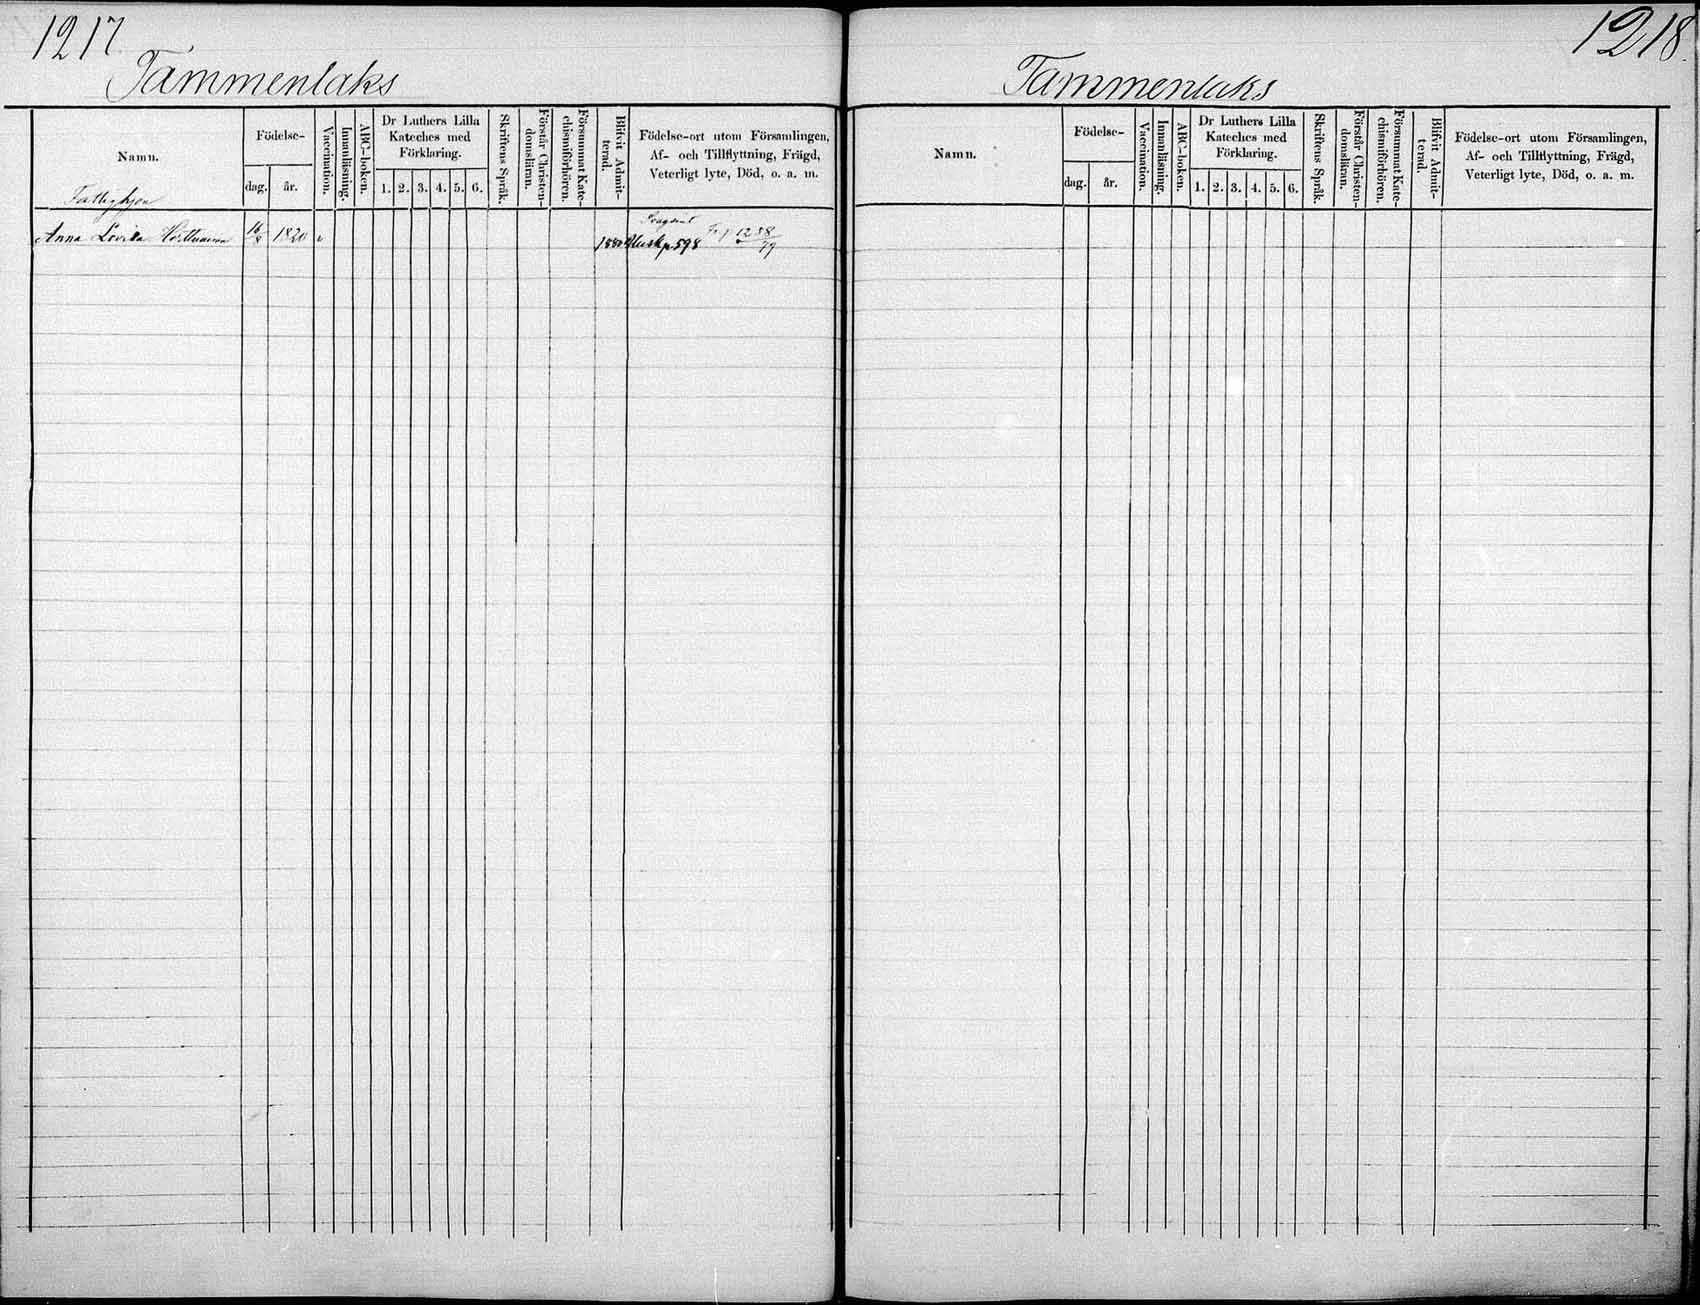 1217
Tammenlaks
Namn.
Födelse-
dag.
år.
Vaccination.
Innanläsning.
ABC-boken.
Dr Luthers Lilla
Kateches med
Förklaring.
1. 2. 3. 4. 5. 6.
Skriftens Språk.
Förstår Christen-
domsläran.
Försummat Kate-
chismiförhören.
Blifvit Admit-
terad.
Födelse-ort utom Församlingen,
Af- och Tillflyttning, Frägd,
Veterligt lyte, Död, o. a. m.
Anna Lovisa 16/8 1820 v
p 598 Fr. p 1238/79
1218.
Tammenlaks
Namn.
Födelse-
dag.
år.
Vaccination.
Innanläsning.
ABC-boken.
Dr Luthers Lilla
Kateches med
Förklaring.
1. 2. 3. 4. 5. 6.
Skriftens Språk.
Förstår Christen-
domsläran.
Försummat Kate-
chismiförhören.
Blifvit Admit-
terad.
Födelse-ort utom Församlingen,
Af- och Tillflyttning, Frägd,
Veterligt lyte, Död, o. a. m.